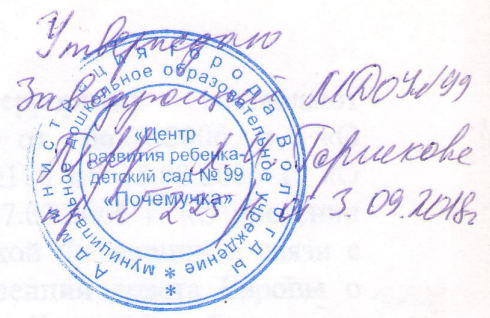 Утверждаю
Заведующий МДОУ №99
Горшкова
пр № 223 от 3.09.2018г
Администрация города Вологды
Муниципальное дошкольное образовательное учреждение
«Центр
развития ребенка-
детский сад № 99
«Почемучка»